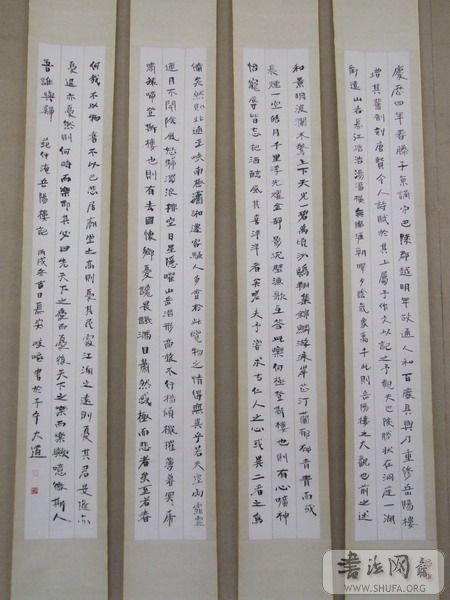 慶历四年春滕子京謫守巴陵郡越明年政通人和百廢具興乃重修岳陽樓
增其舊制刻唐賢今人詩賦於其上屬予作文以記之予觀夫巴陵勝狀在洞庭一湖
銜遠山吞長江浩浩湯湯橫無際涯朝暉夕陰氣象萬千此則岳陽樓之大觀也前之述
備矣然則北通巫峽南極瀟湘遷客騷人多會於此覽物之情得無異乎若夫霪雨霏霏
連月不開陰風怒號濁浪排空日星隱曜山岳潛形商旅不行檣傾楫摧薄暮冥冥虎
嘯猿啼登斯樓也則有去國懷鄉憂讒畏譏滿目蕭然感極而悲者矣至若春
和景明波瀾不驚上下天光一碧萬頃沙鷗翔集錦鱗游泳岸芷汀蘭郁郁青青而或
長煙一空皓月千里浮光耀金靜影沉璧漁歌互答此樂何極登斯樓也則有心曠神
怡寵辱皆忘把酒臨風其喜洋洋者矣嗟夫予嘗求古仁人之心或異二者之為
何哉不以物喜不以己悲居廟堂之高則憂其民處江湖之遠則憂其君是進亦憂
退亦憂然則何時而樂耶其必曰先天下之憂而憂後天下之樂而樂歟噫微斯人
吾誰與歸 范仲淹岳陽樓記 丙戌冬
書法网
WWW.SHUFA.ORG